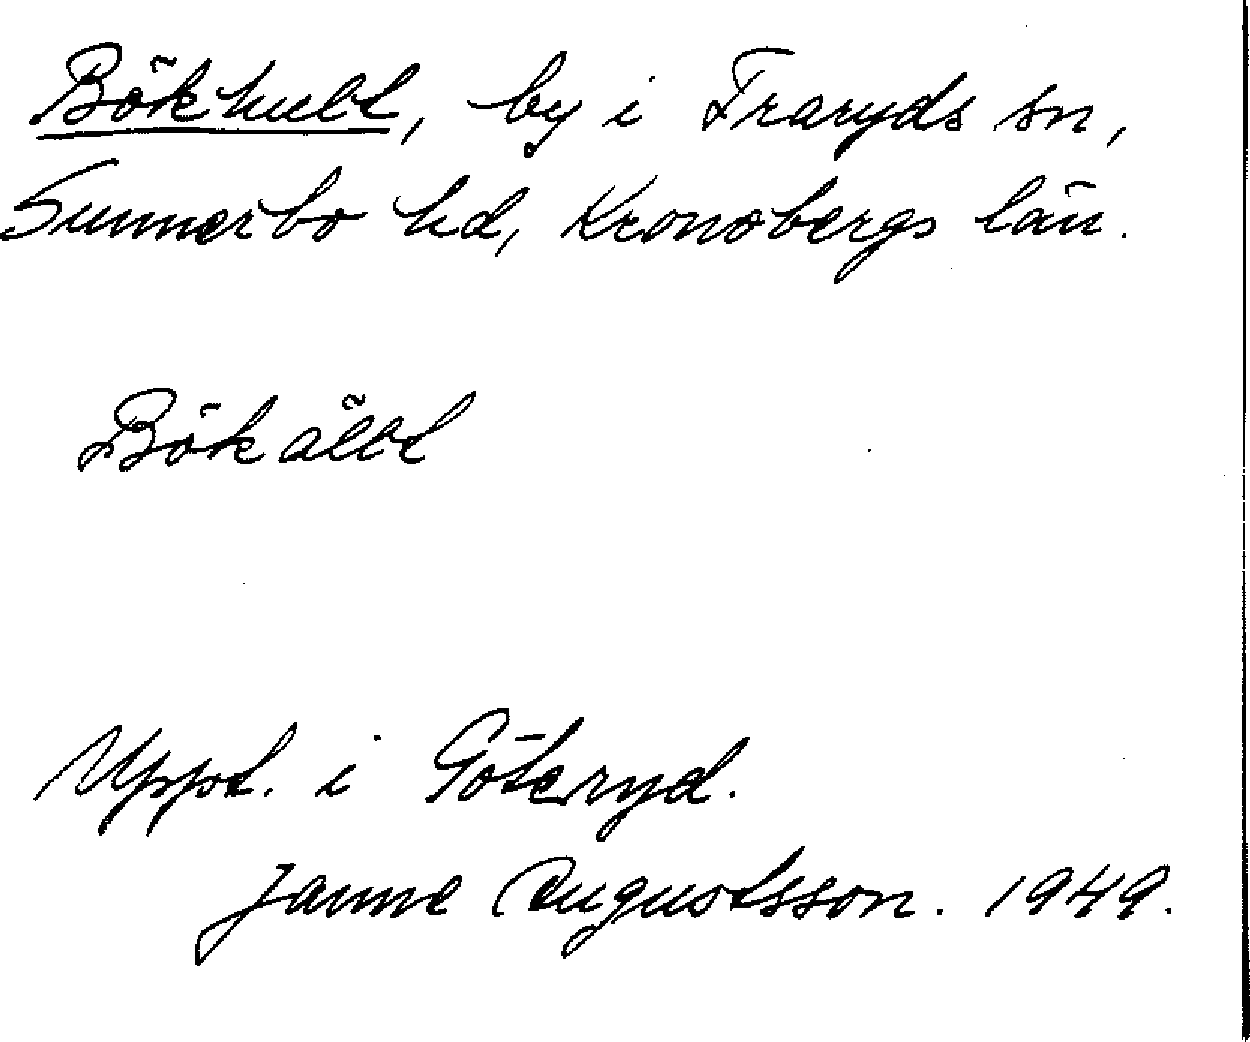 Bökhult, by i Traryds sn,
Sunnerbo hd, Kronobergs län.
Bökället
Uppt. i Göteryd.
Janne Augustsson. 1949.